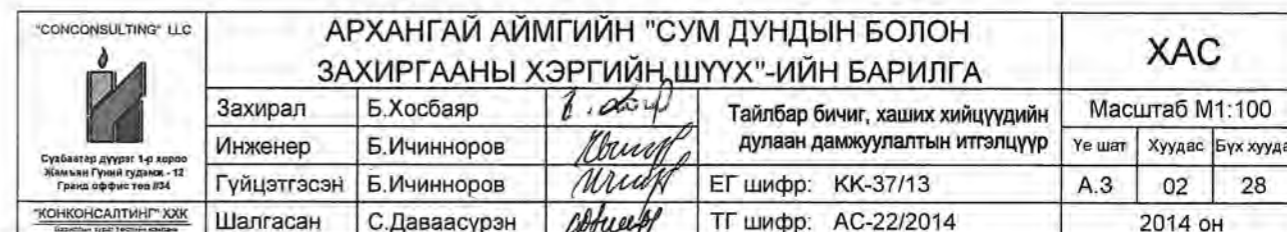 "CONCONSULTING" LLC
Сүхбаатар дүүрэг 1-р хороо
Жамъян Гүний гудамж - 12
Гранд оффис төв #34
"КОНКОНСАЛТИНГ" ХХК
АРХАНГАЙ АЙМГИЙН "СУМ ДУНДЫН БОЛОН
ЗАХИРГААНЫ ХЭРГИЙН ШҮҮХ"-ИЙН БАРИЛГА
ХАС
Захирал Б.Хосбаяр
Инженер Б.Ичинноров
Гүйцэтгэсэн Б.Ичинноров
Шалгасан С.Даваасүрэн
Тайлбар бичиг, хаших хийцүүдийн
дулаан дамжуулалтын итгэлцүүр
ЕГ шифр: КК-37/13
ТГ шифр: АС-22/2014
Масштаб М1:100
Үе шат Хуудас Бүх хууда
А.3 02 28
2014 он